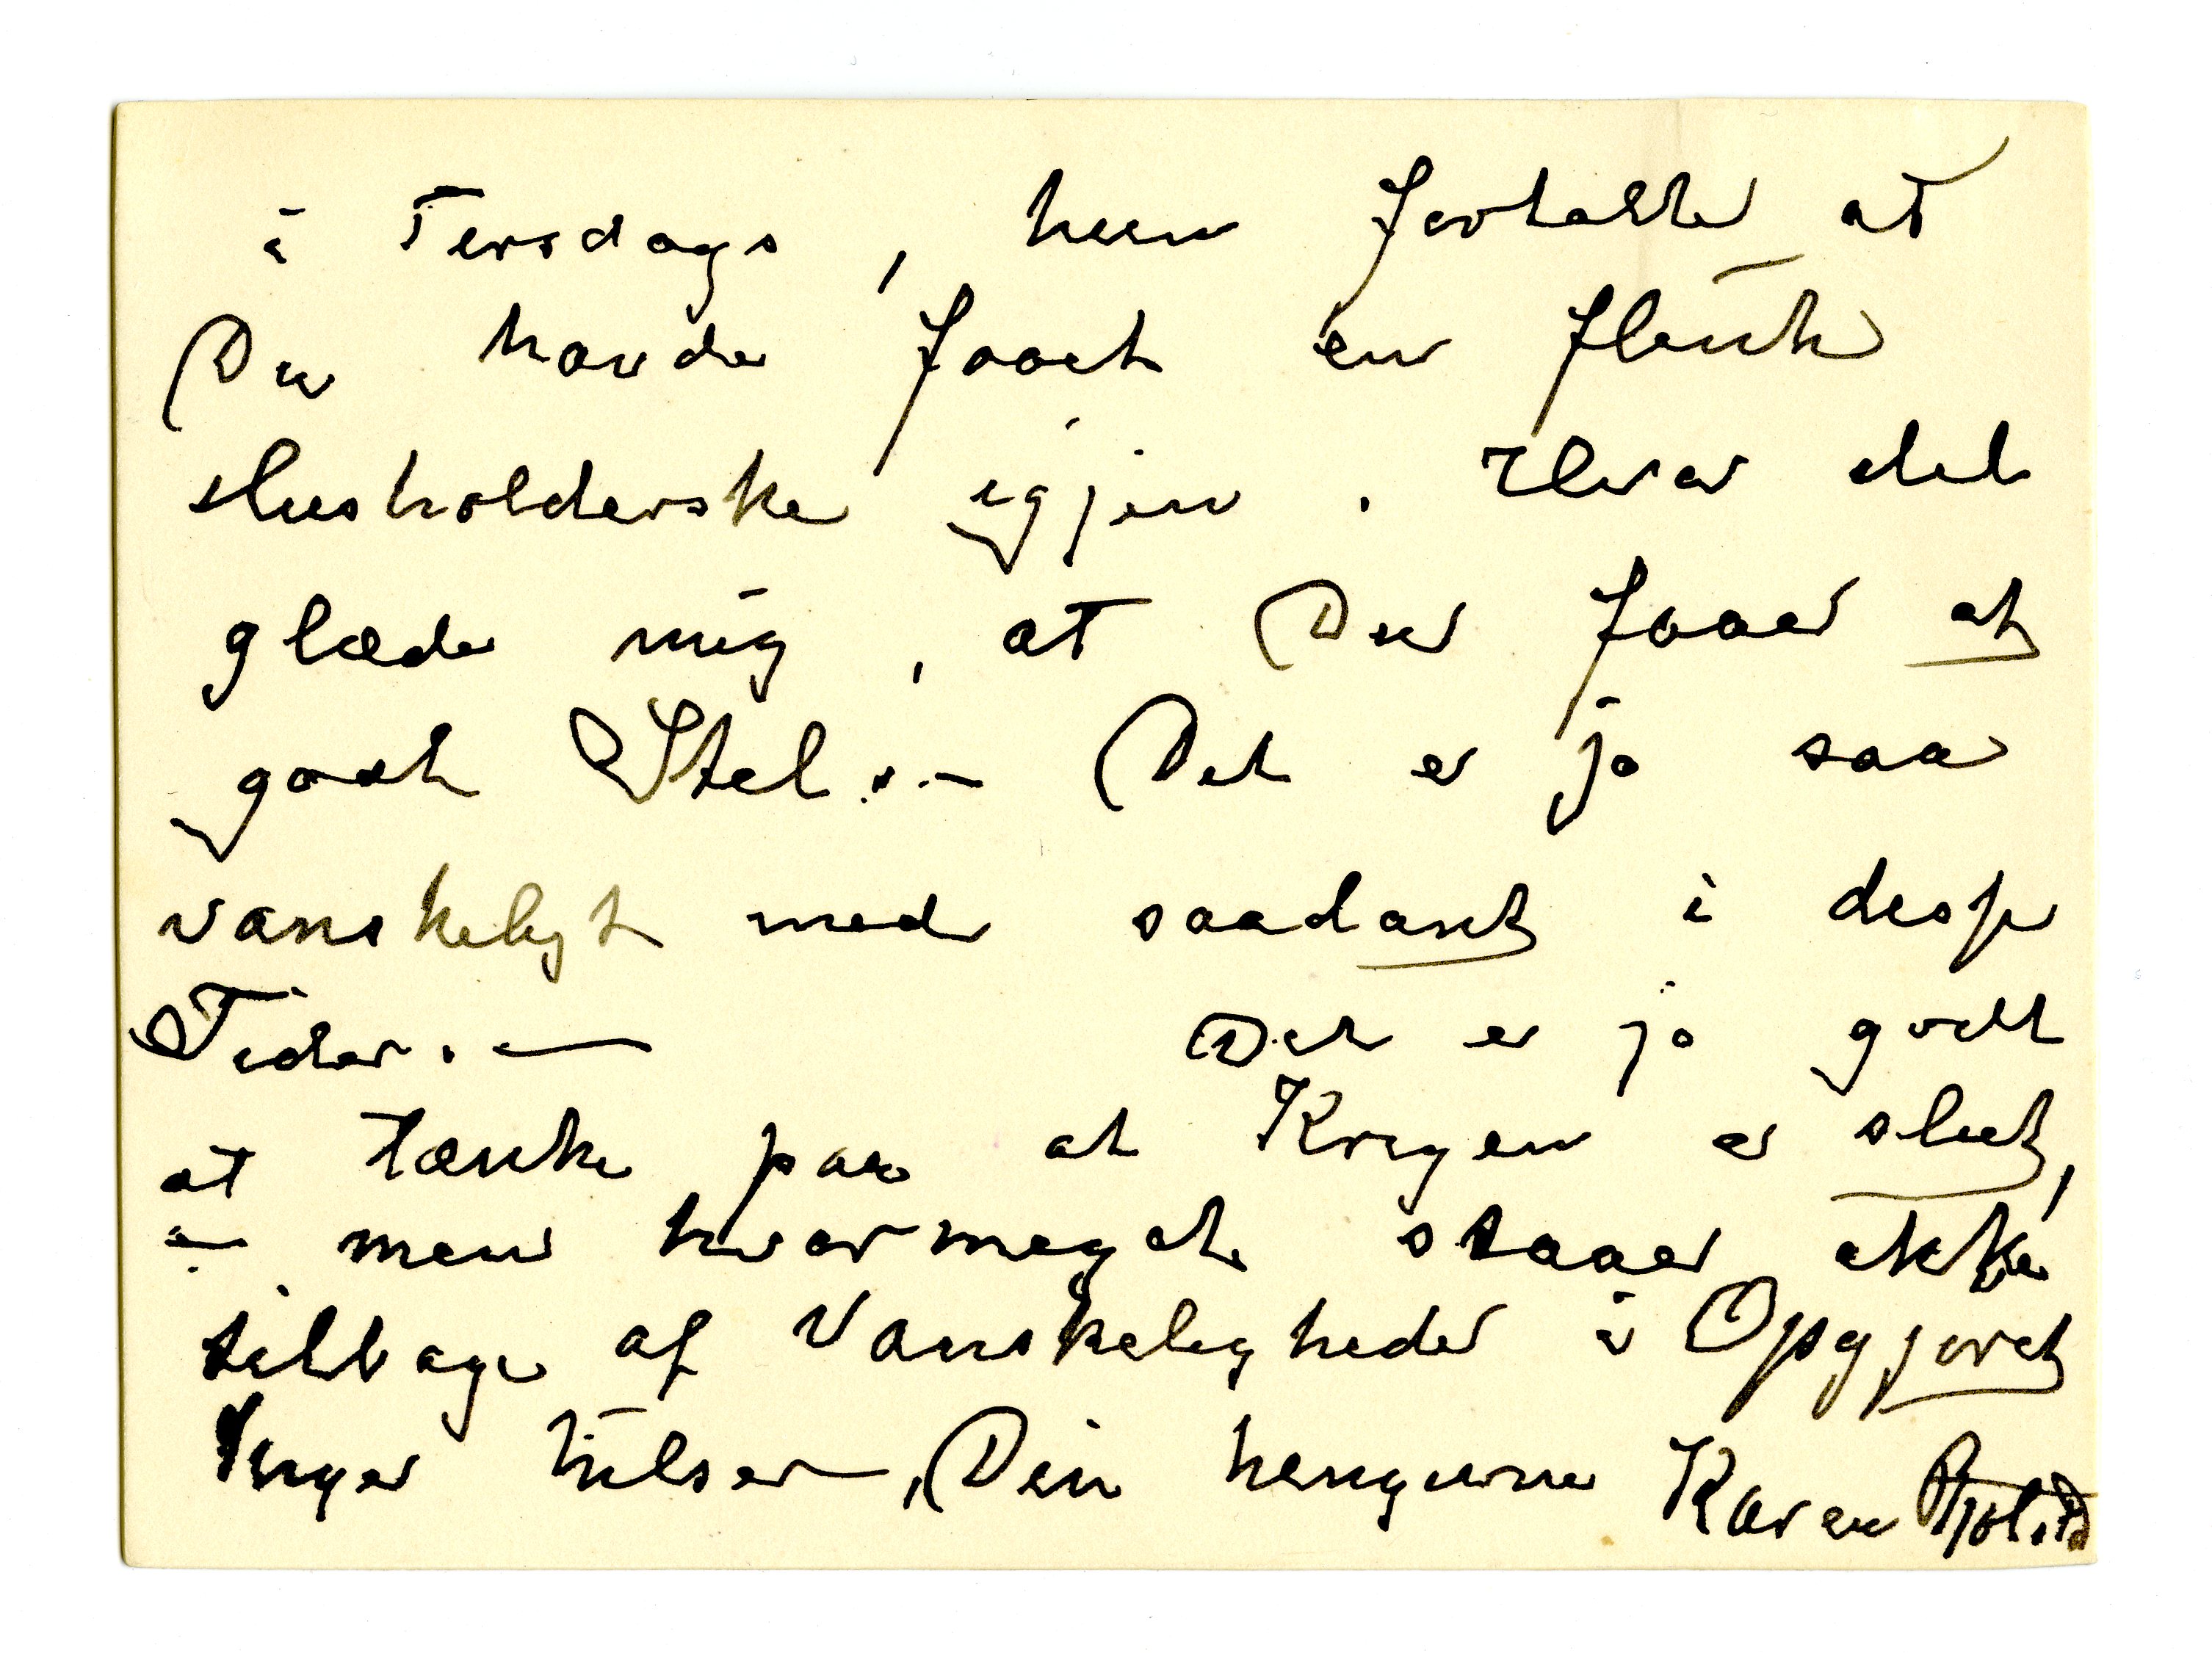 i Tirsdags, hun fortalte at
Du havde faaet en flink
Husholderske igjen. Hvor det
glæder mig, at Du faaer et
godt Stel. — Det er jo saa
vanskeligt med saadant i disse
Tider. — Det er jo godt
at tænke paa at Krigen er slut,
— men hvormeget staaer ikke
tilbage af Vanskeligheder i Opgjøret
Inger hilser, Din hengivne Karen